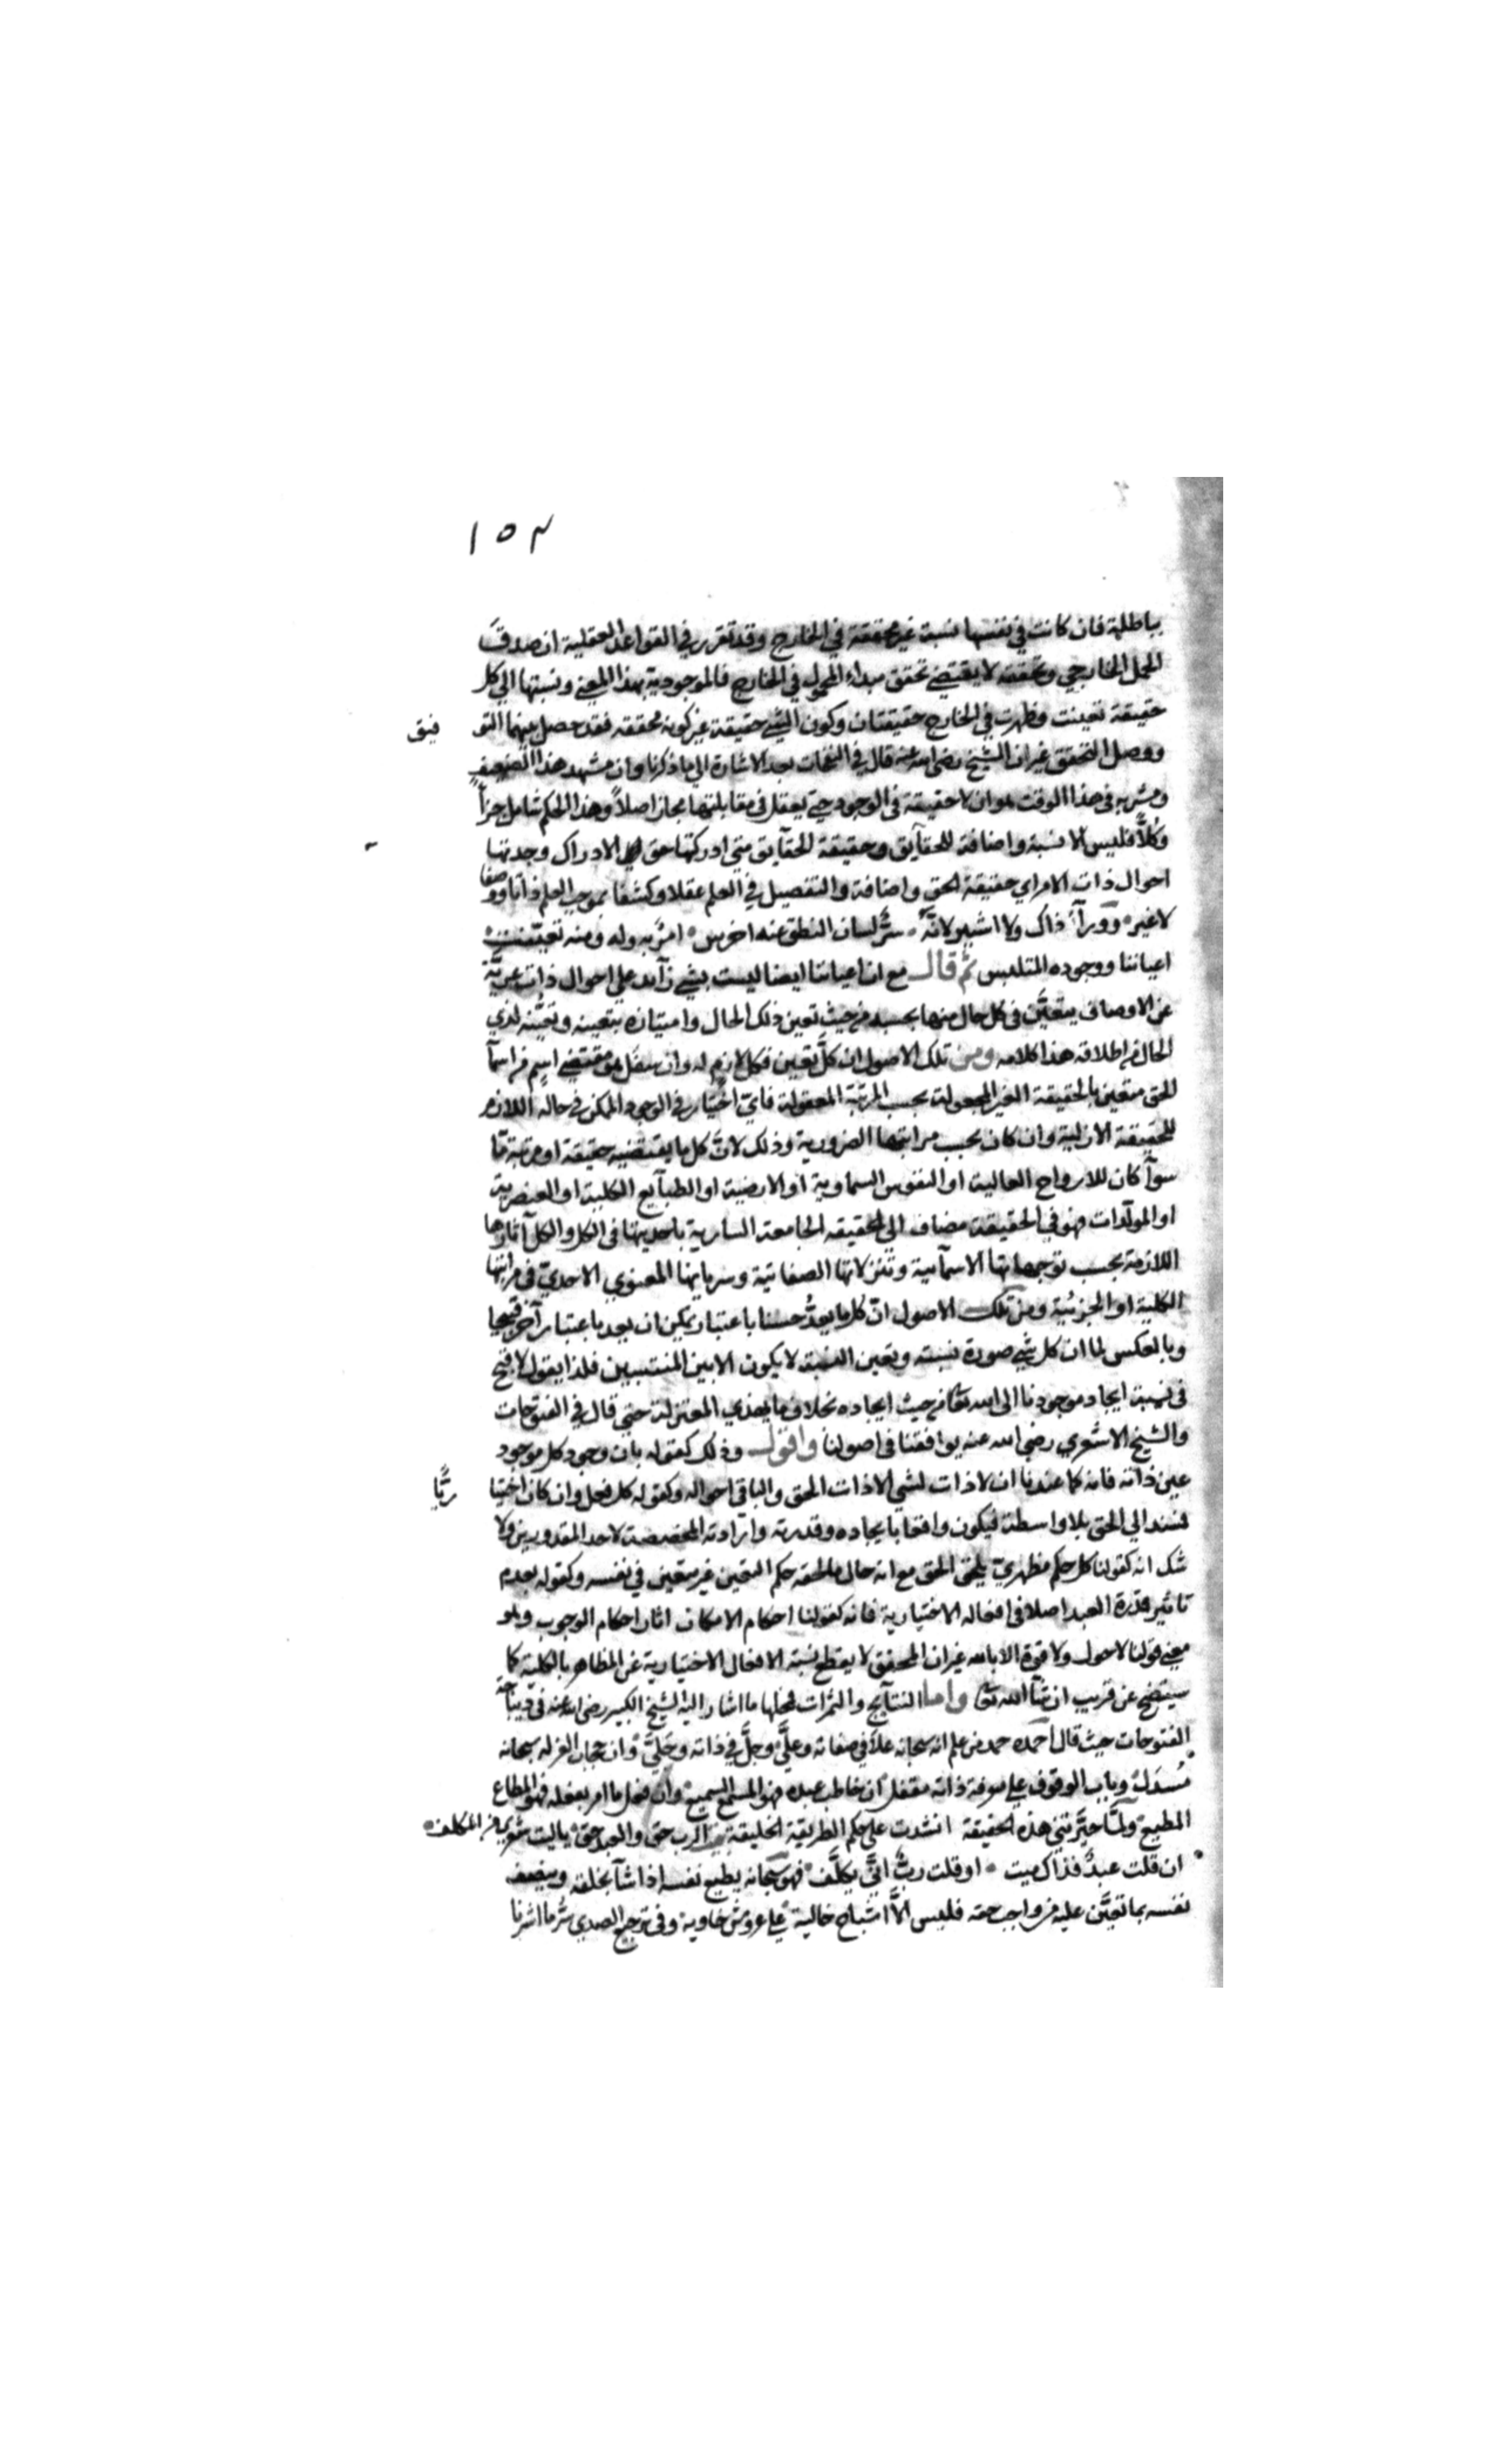 ١٥٣
بباطلة فان كانت في نفسها نسبة غير محققة في الخارج وقد تقرر في القواعد العقلية ان صدق
الحمل الخارجي وتحققه لا يقتضي تحقق مبداء المحمول في الخارج فالموجودية بهذا المعنى ونسبتها الى كل
حقيقة تعينت وظهرت في الخارج حقيقتان وكون الشي حقيقة غير كونه محققه فقد حصل بينهما التو فيق
ووصل التحقق غير ان الشيخ رضي الله عنه قال في النفحات بعد الاشارة الى ما ذكرنا وان مشهد هذا الضعيف
ومشربه في هذا الوقت هو ان لا حقيقة في الوجود حتى يعقل في مقابلتها مجاز اصلاً وهذا الحكم شامل جزأً
وكُلاًّ فليس الا نسبة واضافة للحقايق وحقيقة الحقآيق متي ادركتها حق الادراك وجدتها
احوال ذات الامر اي حقيقة الحق واضافة والتفصيل في العلم عقلا وكشفا بموجب العلم ذاتا ووصفا
لا غير ووراء ذاك ولا اشير لانه سرٌّ لسان النطق عنه اخرس امرٌ به وله ومنه تعينت
اعياننا ووجوده المتلبس ثم قال مع ان اعياننا ايضا ليست بشي زآيد علي احوال ذات عريّة
عن الاوصاف يتعيَّن في كل حال منها بحسبه من حيث تعين ذلك الحال وامتيازه بتعينه وتعيُّنه لذي
الحال من اطلاقه هذا كلامه ومن تلك الاصول ان كلَّ تعين فكل لازم له وان سفل هو مقتضي اسم من اسمآ
الحق متعين بالحقيقة الغير المجعولة بحسب المرتبة المعقولة فايّ اختيار في الوجود الممكن في حاله اللازم
للحقيقة الازلية وان كان بحسب مراتبها الضرورية وذلك لانّ كل ما يقتضيه حقيقة او مرتبة مّا
سوآ كان للارواح العالية او النفوس السماوية او الارضية او الطبآيع الكلية او العنصرية
او المولّدات فهو في الحقيقة مضاف الى الحقيقه الجامعة السارية باحديتها في الكل والكل آثارها
اللازمة بحسب توجهاتها الاسمآئية وتنزلاتها الصفاتية وسريانها المعنوي الاحديّ في مراتبها
الكلية او الجزئية ومن تلك الاصول انّ كل ما يعدُّ حسنا باعتبار يمكن ان يعد باعتبار آخر قبيحا
وبالعكس لما ان كل شي صورة نسبته وتعين النسبة لا يكون الا بين المنتسبين فلذا يقول لا قبح
في نسبة ايجاد موجودنا الى الله تعالى من حيث ايجاده بخلاف ما يهذي المعتزلة حتى قال في الفتوحات
والشيخ الاشعري رضي الله عنه يوافقنا في اصولنا واقول وذلك كقوله بان وجود كل موجود
عين ذاته فانه كما عندنا ان لا ذات لشي الا ذات الحق والباقي احواله وكقوله كل فعل وان كان اختيا ريًّا
مستند الي الحق بلا واسطة فيكون واقعا بايجاده وقدرته وارادته المخصصة لاحد المقدورين ولا
شك انه كقولنا كل حكم مظهريّ يلحق الحق مع انه حال ما لحقه حكم التعين غير متعين في نفسه وكقوله بعدم
تاثير قدرة العبد اصلا في افعاله الاختيارية فانه كقولنا احكام الامكان اثار احكام الوجوب وهو
معنى قولنا لا حول ولا قوة الا بالله غير ان المحقق لا يقطع نسبة الافعال الاختيارية عن المظاهر بالكلية كما
سيتضح عن قريب ان شآ الله تعالى واما النتآيج والثمرات فجلها ما اشار اليه الشيخ الكبير رضي الله عنه في ديباجة
الفتوحات حيث قال احمده حمد من علم انه سبحانه علا في صفاته وعلّي وجلَّ في ذاته وجلّي وان حجاب العزة له سبحانه
مُسدَل وباب الوقوف علي معرفة ذاته مقفل ان خاطب عبده فهو المسمع السميع وان فعل ما امر بفعله فهو المطاع
المطيع ولمّا حيَّرتني هذه الحقيقة انشدت علي حكم الطريقة الخليقة الرب حق والعبد حق ياليت شعري من المكلف
ان قلت عبدٌ فذاك ميت او قلت ربٌّ انّي يكلَّف فهو سبحانه يطيع نفسه اذا شآ بخلقه وينصف
نفسه بما تعيَّن عليه من واجب حقه فليس الاَّ اشباح خالية علي عروش خاوية وفي ترجيع الصدي سرُّ ما اشرنا